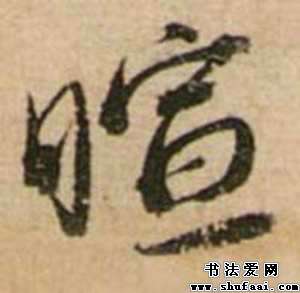 暄
书法爱网
www.shufaai.com